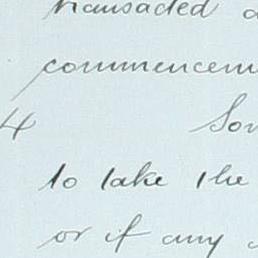 transacted
commencem
4 Son
to take the
or if any